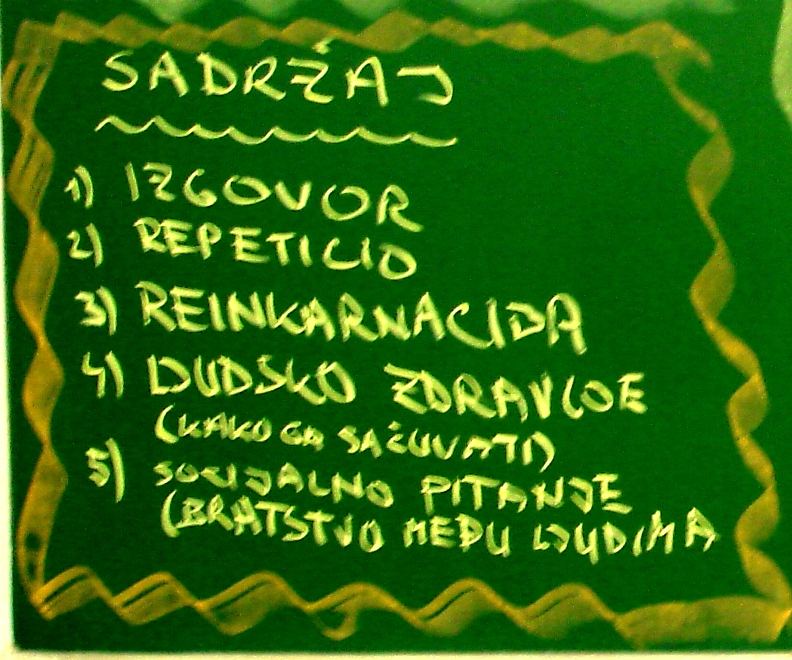 SADRŽAJ
1) IZGOVOR
2) REPETICIO
3) REINKARNACIJA
4) LJUDSKO ZDRAVLJE
(KAKO GA SAČUVATI)
5) SOCIJALNO PITANJE
(BRATSTVO MEĐU LJUDIMA